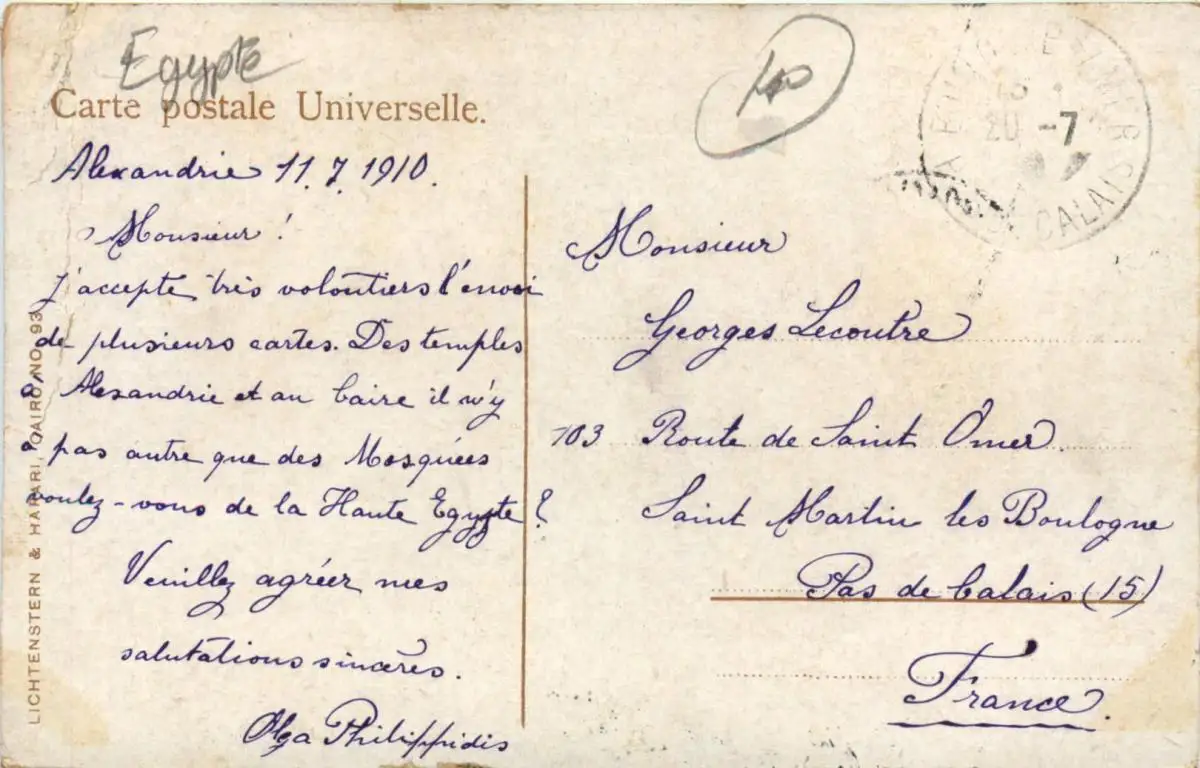 Egypte
Carte postale Universelle.
Alexandrie 11. 7. 1910.
Monsieur!
J'accepte très volontiers l'envoi
de plusieurs cartes. Des temples
à Alexandrie et au Caire il n'y
a pas autre que des Mosquées
voulez-vous de la Haute Egypte?
Veuillez agréer mes
salutations sincères.
Olga Philippidis
LICHTENSTERN & HARARI, CAIRO, NO 93
Monsieur
Georges Lecoutre
103 Route de Saint Ômer
Saint Martin les Boulogne
Pas de Calais (15)
France.
20 -7
CALAIS